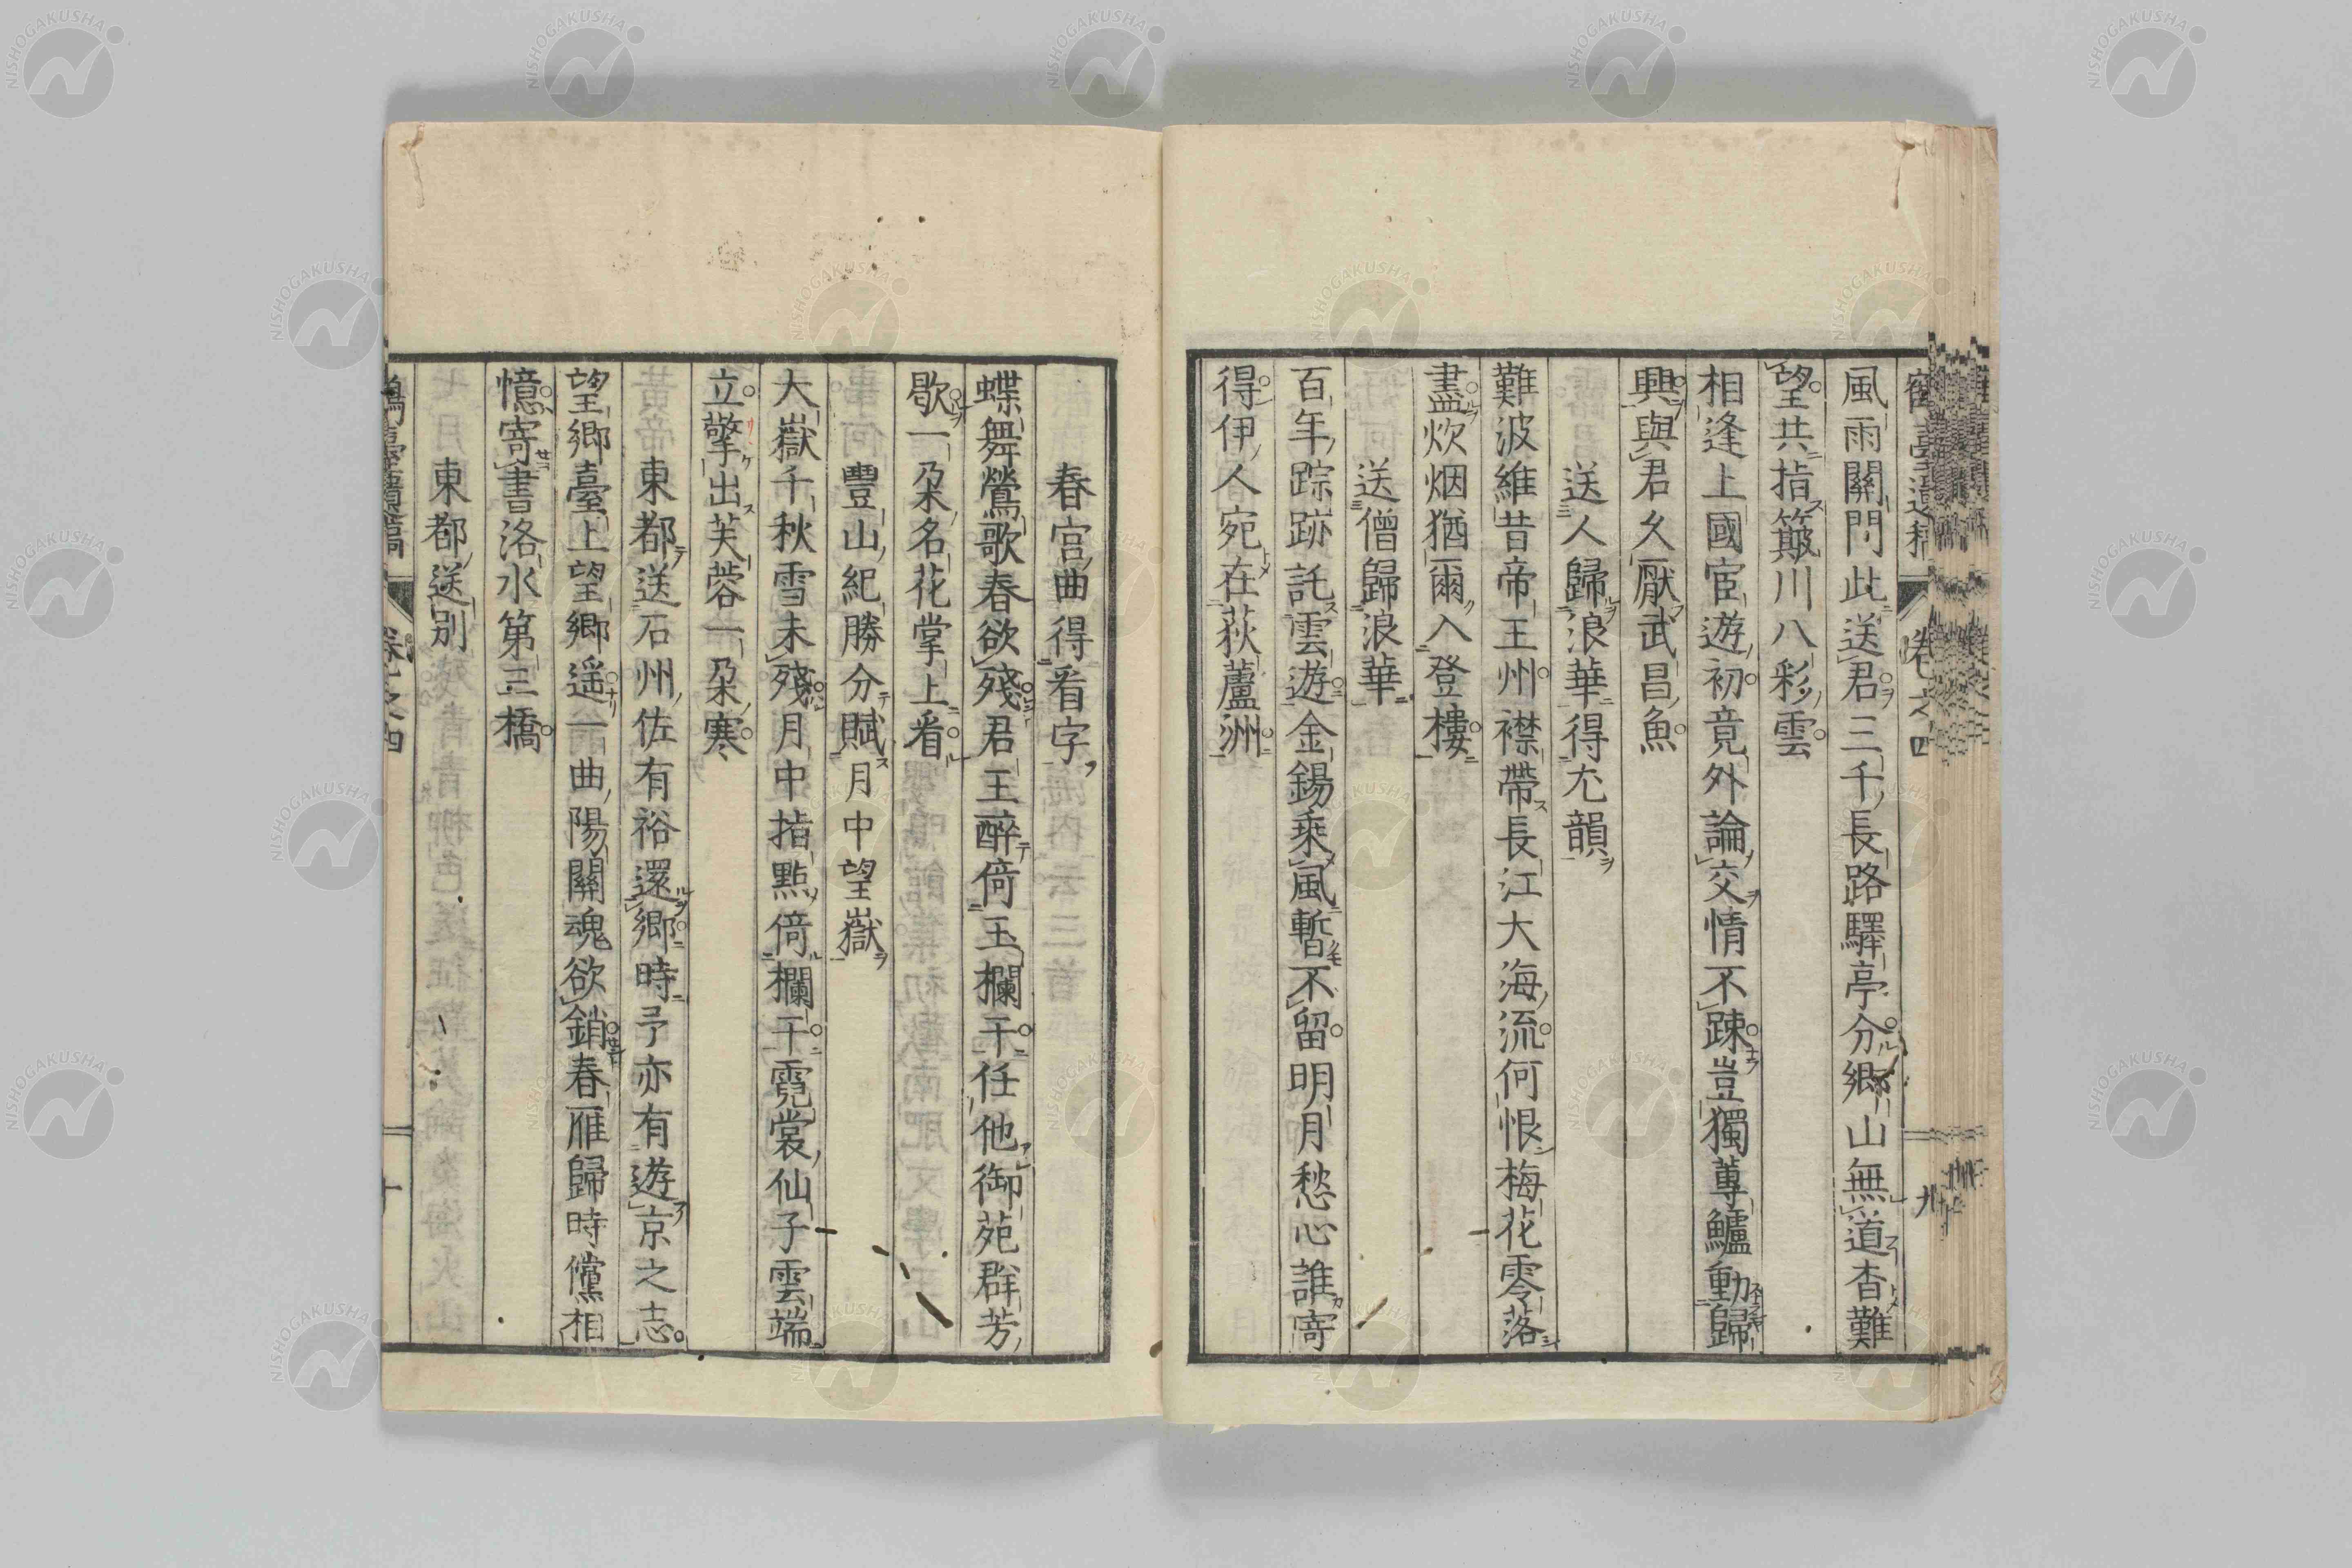 風雨關門此送君三千長路驛亭分鄉山無道杳難
望共指簸川八彩雲
相逢上國宦遊初竟外論交情不踈豈獨蓴鱸動歸
興與君久厭武昌魚
送人歸浪華得尤韻
難波維昔帝王州襟帶長江大海流何恨梅花零落
盡炊烟猶爾入登樓
送僧歸浪華
百年踪跡託雲遊金錫乘風暫不留明月愁心誰寄
得伊人宛在荻蘆洲
春宮曲得看字
蝶舞鶯歌春欲殘君王醉倚玉欄干任他御苑群芳
歇一朶名花掌上看
豐山紀勝分賦月中望嶽
大嶽千秋雪未殘月中指點倚欄干霓裳仙子雲端
立擎出芙蓉一朶寒
東都送石州佐有裕還鄉時予亦有遊京之志
望鄉臺上望鄉遥一曲陽關魂欲銷春雁歸時儻相
憶寄書洛水第三橋
東都送別